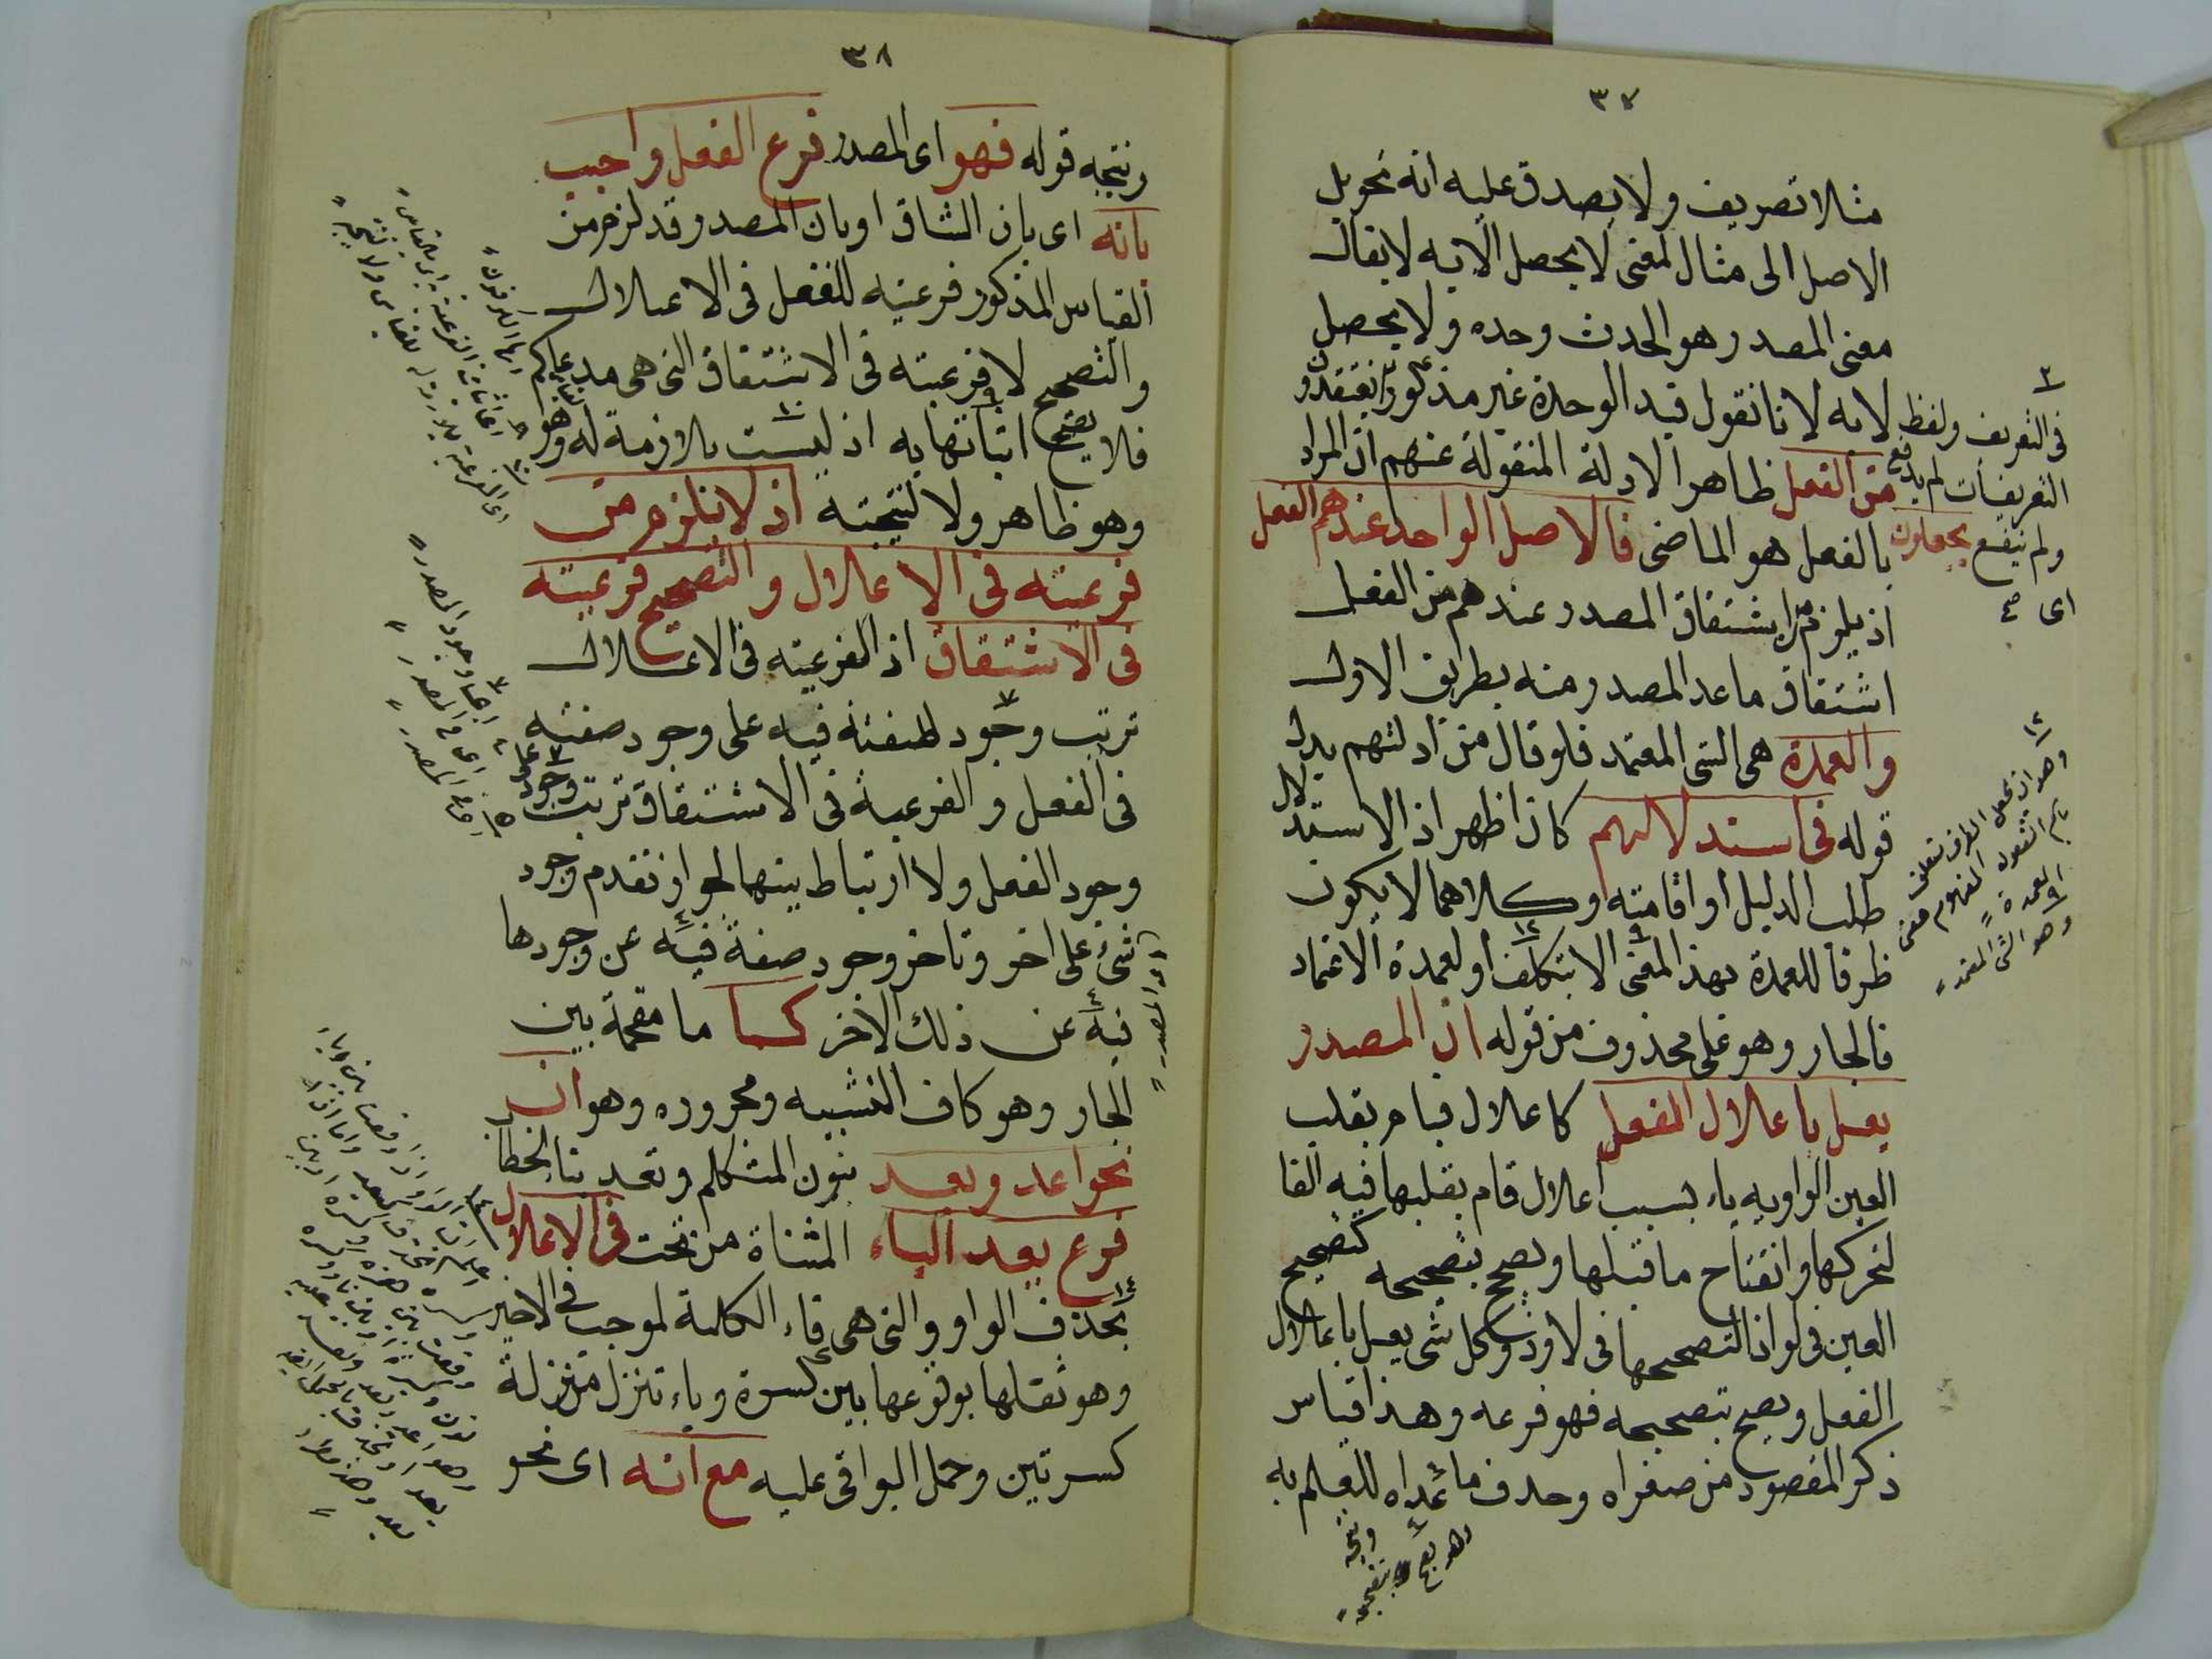 ٣٧
مثلا تصريف ولا يصدق عليه انه تحويل
الاصل الى مثال لمعنى لا يحصل الا به لا يقال
معنى المصدر وهو الحدث وحده ولا يحصل
لا به لانا نقول قيد الوحدة غير مذكور
من الفعل ظاهر الادلة المنقولة عنهم ان المراد
بالفعل هو الماضى فالاصل الواحد عندهم الفعل
اذ يلزم اشتقاق المصدر عندهم من الفعل
اشتقاق ما عدا المصدر منه بطريق الاولى
والعمدة هى الشى المعتمد فلو قال من ادلتهم بدل
قوله فى استدلالهم كان اظهر اذ الاستدلال
طلب الدليل او اقامته وكلاهما لا يكون
ظرفا للعمدة بهذا المعنى الا بتكلف او لعمدة الاعتماد
فالجار وهو على محذوف من قوله ان المصدر
يعل باعلال الفعل كاعلال قيام بقلب
العين الواويه ياء بسبب اعلال قام بقلبها فيه الفا
لتحركها وانفتاح ما قبلها ويصح بتصحيحه كتصحيح
العين فى لواذا لتصحيحها فى لاوذ وكل شى يعل باعلال
الفعل ويصح بتصحيحه فهو فرعه وهذا قياس
ذكر المقصود من صغراه وحذف ما عداه للعلم به
فى التعريف ولفظ
التعريفات لم يدفع
ولم ينفع يجعلون
اى
وهو ان نجعل الظرف متعلق
وهو الشى المعتمد
٣٨
ونتيجه قوله فهو اى المصدر فرع الفعل واجيب
بانه اى بان الشان او بان المصدر قد لزم من
القياس المذكور فرعيته للفعل فى الاعلال
والتصحيح لا فرعيته فى الاشتقاق التى هى مدعاكم
فلا يصح اثباتها به اذ ليست بلازمة له وهو
وهو ظاهر ولا لنتيجته اذ لا يلزم من
فرعيته فى الاعلال والتصحيح فرعيته
فى الاشتقاق اذ الفرعيته فى الاعلال
ترتب وجود لصفته فيه على وجود صفته
فى الفعل والفرعية فى الاشتقاق ترتب وجوده على
وجود الفعل ولا ارتباط بينهما لجواز تقدم وجود
شئ على اخر وتاخر وجود صفة فيه عن وجودها
فيه عن ذلك الاخر كما ما مقحمة بين
الجار وهو كاف التشبيه ومجروره وهو ان
نحو اعد وبعد بنون المتكلم وتعد بتا الخطاب
فرع يعد الياء المثناة من تحت فى الاعلال
بحذف الواو والتى هى فاء الكلمة لموجب فى الاخير
وهو ثقلها بوقوعها بين كسرة وياء تنزل منزلة
كسرتين وحمل البواقى عليه مع انه اى نحو
اى وجود المصدر
اى فى المصدر